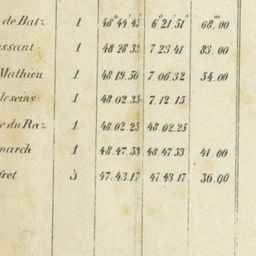 de Batz 1 48°44'45 6°21'51" 68.m00
essant 1 48 28 35 7 23 41 83.00
Mathieu 1 48 19 50 7 06 32 54.00
de seins 1 48 02 35 7 12 15
e du Raz 1 48 02 25 48 02 25
march 1 48 47 53 48 47 53 41.00
fret 3 47.43 17 47.43 17 36.00